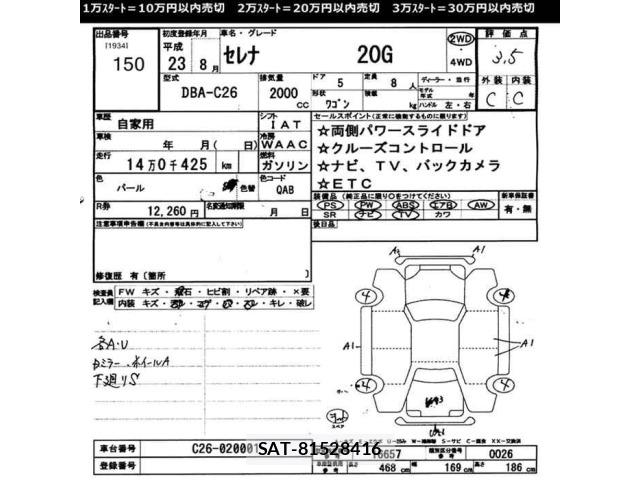 1万ｽﾀｰﾄ＝10万円以内売切 2万ｽﾀｰﾄ＝20万円以内売切 3万ｽﾀｰﾄ＝30万円以内売切
出品番号
[1934]
150
初度登録年月
平成
23 8 月
車名・グレード
セレナ 20G
2WD
4WD
評価点
3.5
外装 内装
C C
型式
DBA-C26
排気量
2000 cc
ドア 5
形状 ワゴン
定員 8 人
積載 kg
ディーラー・並行
モデル年式 年
ハンドル 左・右
車歴
自家用
シフト
IAT
車検
年 月 ( 日)
冷房
WAAC
走行
14万0千425 km
燃料
ガソリン
色
パール
色替
色コード
QAB
R券
12,260 円
名変通知期限
月 日
セールスポイント(正常に機能するものに限ります)
☆両側パワースライドドア
☆クルーズコントロール
☆ナビ、TV、バックカメラ
☆ETC
装備品 (純正品に限り○をつけてください)
PS PW ABS エアB AW
SR ナビ TV カワ
新車保証書
有・無
後日品
注意事項申告欄
修復歴 有〔箇所 〕
検査員記入欄
FW キズ・飛石・ヒビ割・リペア跡・×要
内装 キズ・キレ・破レ
各A・U
ドミラー、ホイールA
下廻りS
A1
A1
A1
4
4
4
4
スペア
車台番号
C26-020001
SAT-81528416
類別区分番号
0026
登録番号
長さ 468 cm
幅 169 cm
高さ 186 cm